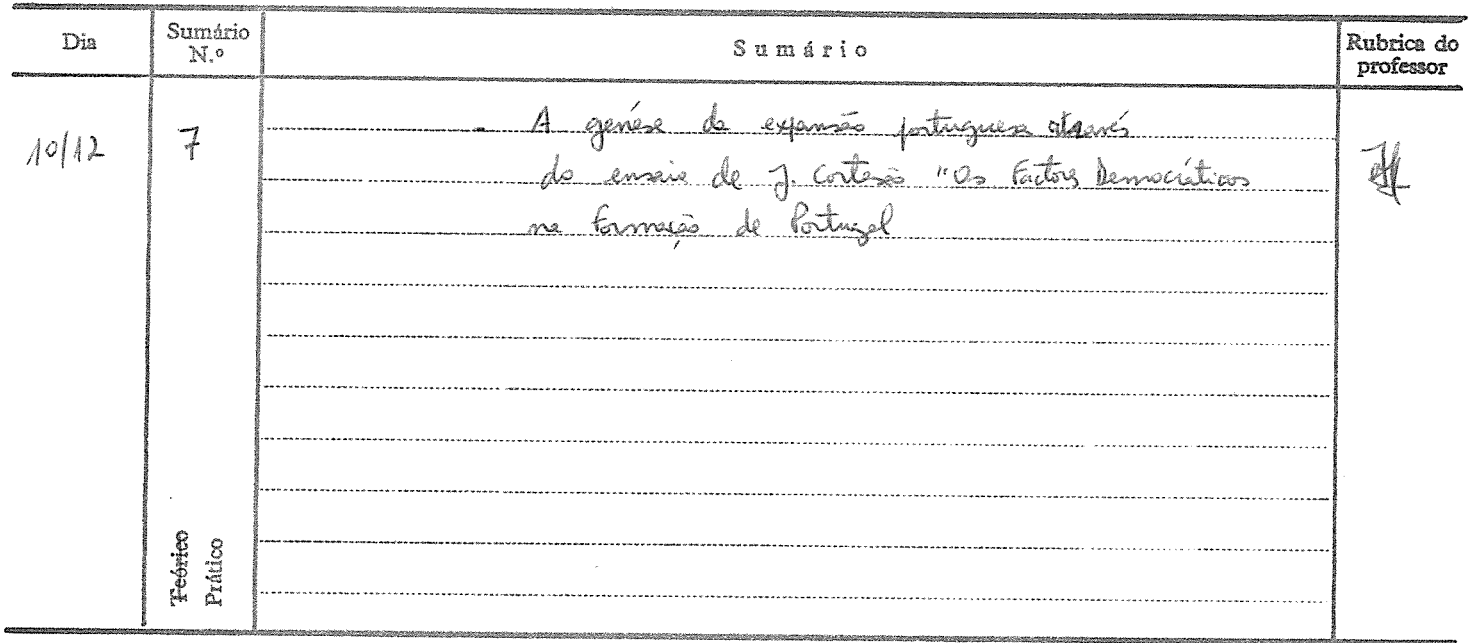 Dia
Sumário N.º
Sumário
Rubrica do professor
10/12
7
- A genése da expansão portuguesa através
do ensaio de J. Cortesão "Os Factores Democráticos
na formação de Portugal
Teórico
Prático